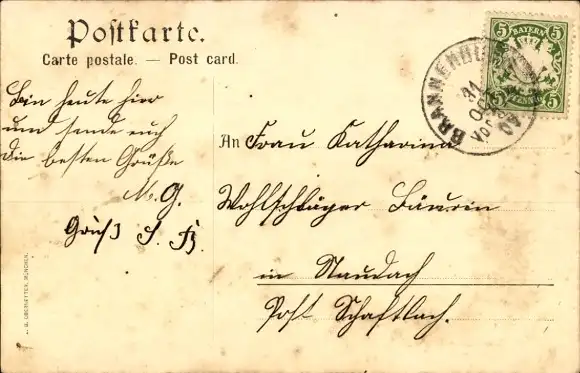 Postkarte.
Carte postale. — Post card.
Bin heute hier
und sende euch
die besten Grüße
M. G.
Gruß S. B.
5 BAYERN 5
5 PFENNIG 5
BRANNENBURG
31
An Frau Katharina
Wohlschläger Bäurin
in Staudach
Post Schaftlach.
OBERNETTER, MÜNCHEN.